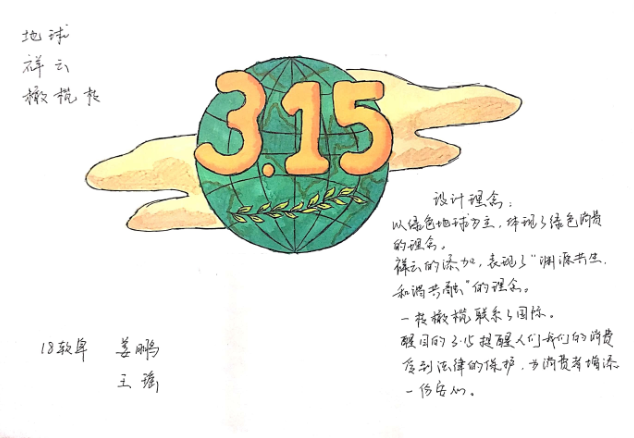 地球
祥云
橄榄枝
3.15
设计理念：
以绿色地球为主，体现了绿色消费
的理念。
祥云的添加，表现了“渊源共生，
和谐共融”的理念。
一枝橄榄联系了国际。
醒目的3.15提醒人们我们的消费
受到法律的保护，为消费者增添
一份安心。
18软单 姜鹏
王瑶